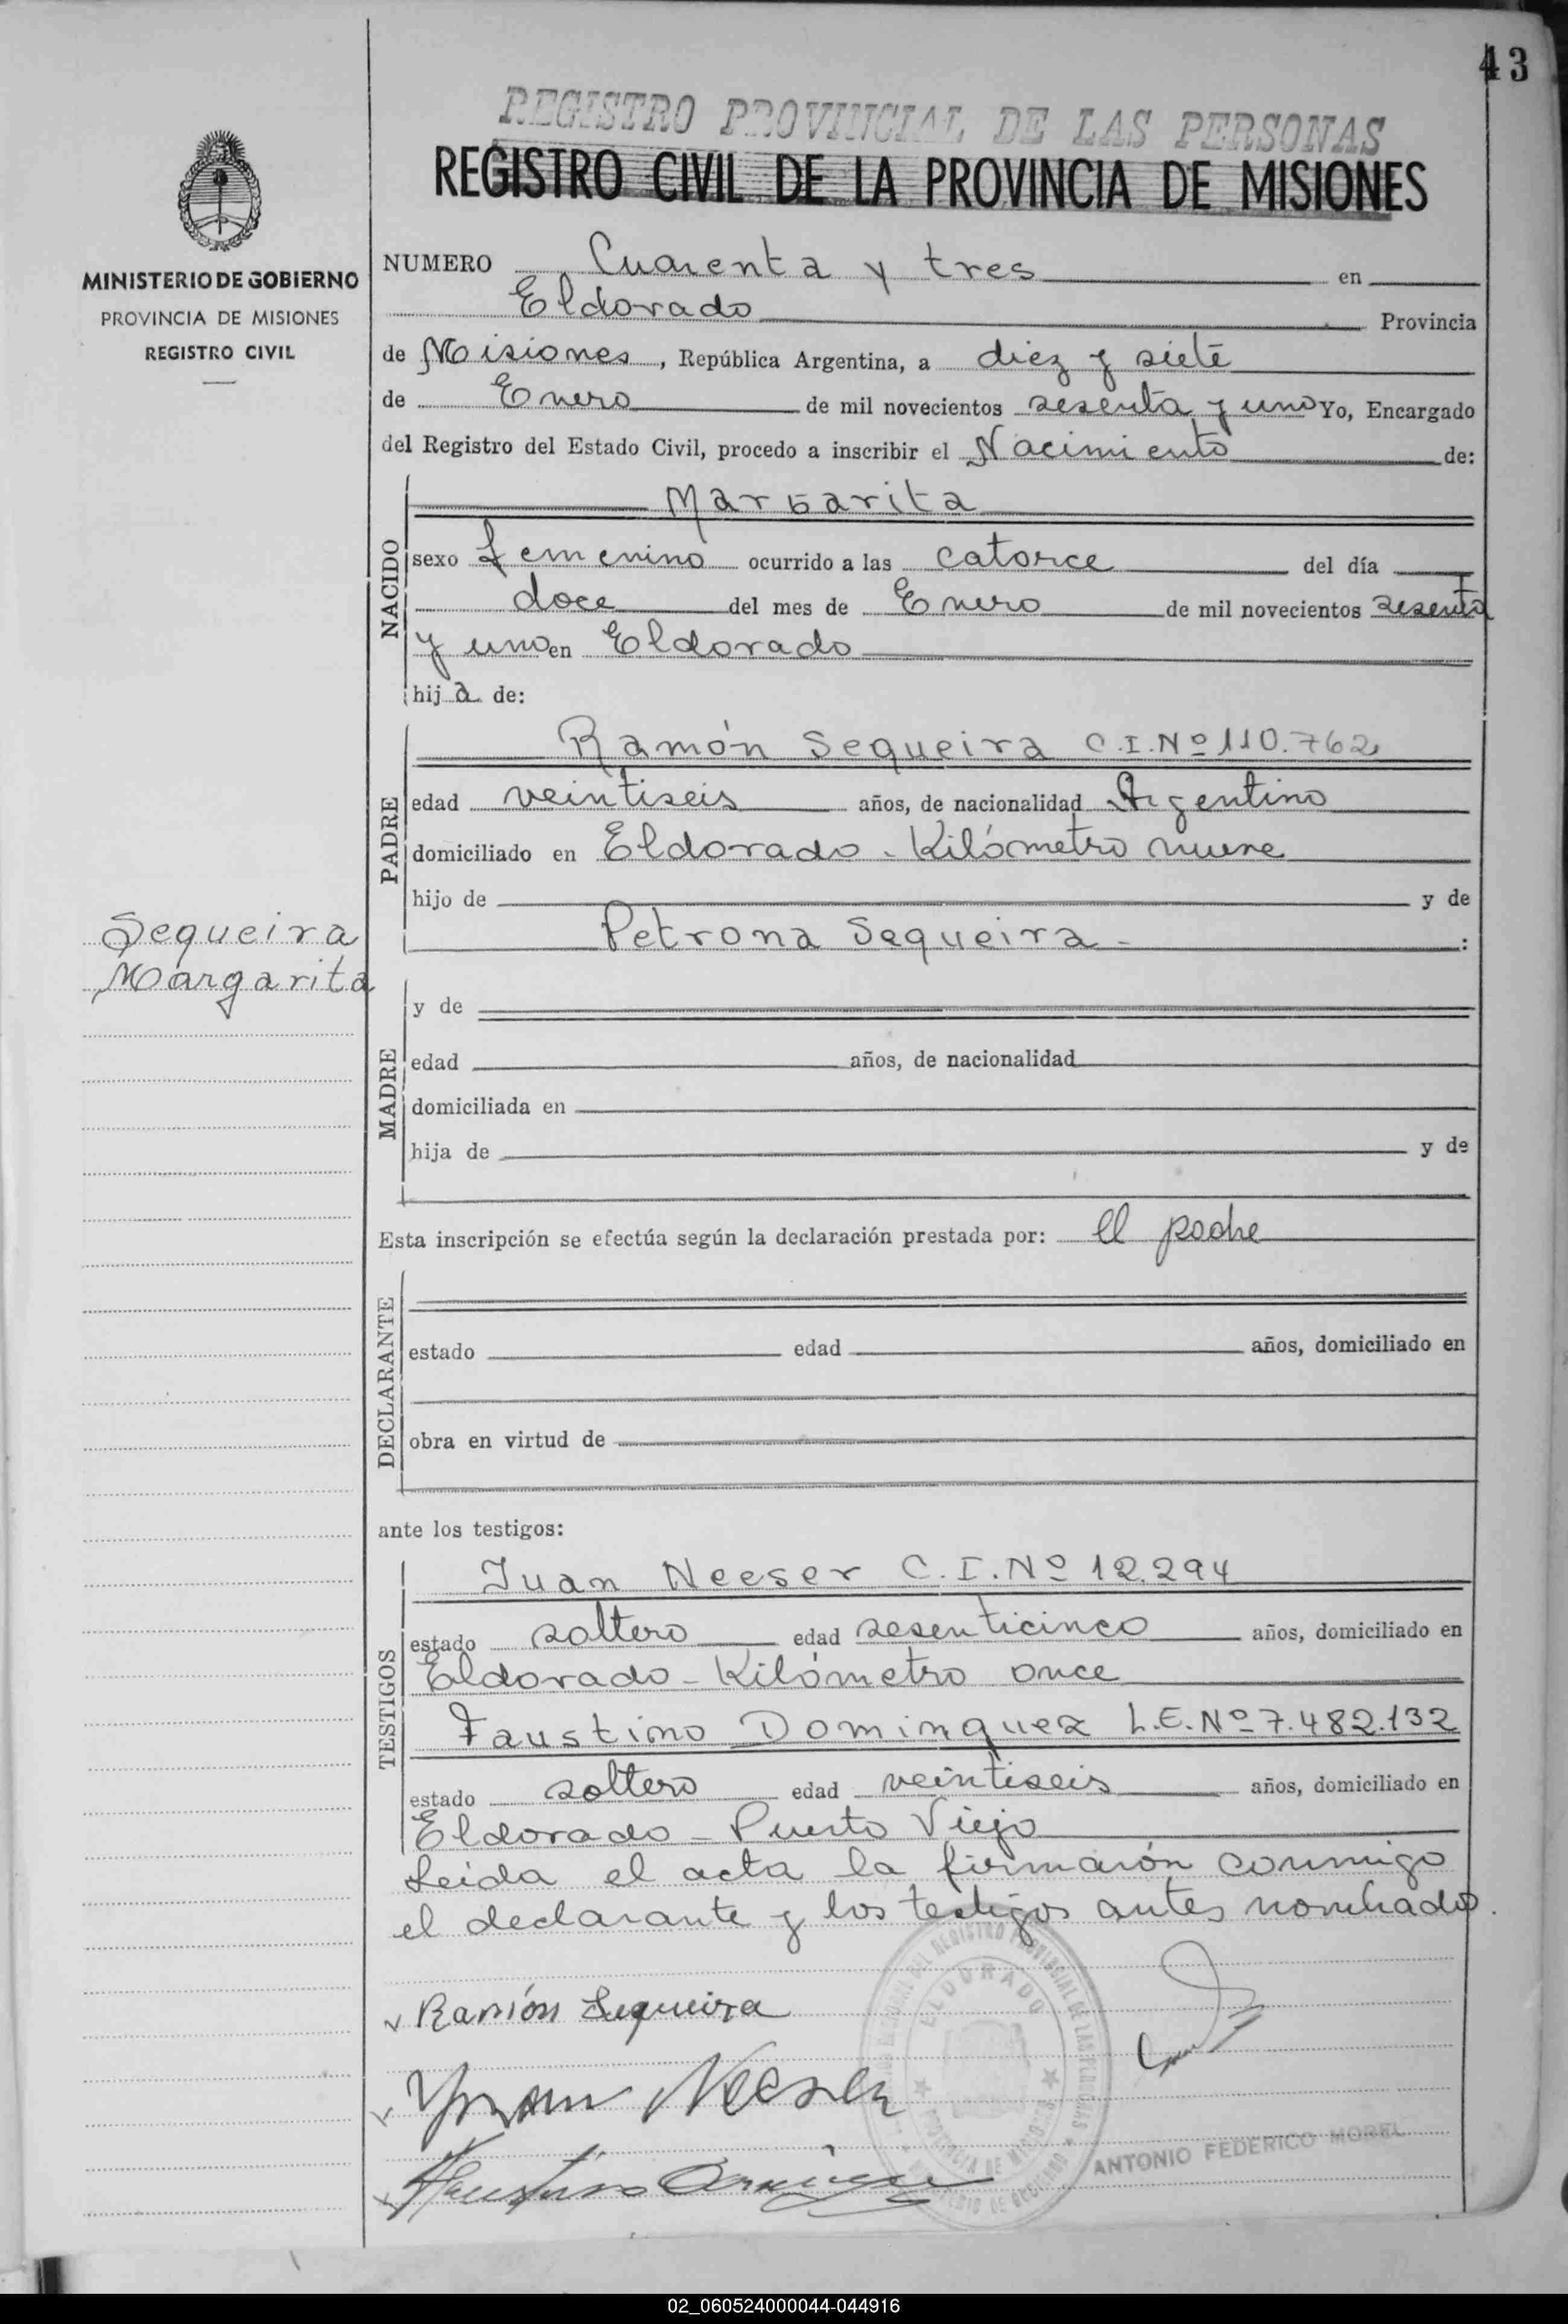 43
REGISTRO PROVINCIAL DE LAS PERSONAS
REGISTRO CIVIL DE LA PROVINCIA DE MISIONES
MINISTERIO DE GOBIERNO
PROVINCIA DE MISIONES
REGISTRO CIVIL
NUMERO Cuarenta y tres en
Eldorado Provincia
de Misiones, República Argentina, a diez y siete
de Enero de mil novecientos sesenta y uno Yo, Encargado
del Registro del Estado Civil, procedo a inscribir el Nacimiento de:
NACIDO
Margarita
sexo femenino ocurrido a las catorce del día
doce del mes de Enero de mil novecientos sesenta
y uno en Eldorado
hija de:
PADRE
Ramón Sequeira C.I.Nº 110.762
edad veintiseis años, de nacionalidad Argentino
domiciliado en Eldorado - Kilómetro nueve
hijo de y de
Petrona Sequeira - :
Sequeira
Margarita
MADRE
y de
edad años, de nacionalidad
domiciliada en
hija de y de
Esta inscripción se efectúa según la declaración prestada por: el padre
DECLARANTE
estado edad años, domiciliado en
obra en virtud de
ante los testigos:
TESTIGOS
Juan Neeser C.I.Nº 12.294
estado soltero edad sesenticinco años, domiciliado en
Eldorado - Kilómetro once
Faustino Dominguez L.E.Nº 7.482.132
estado soltero edad veintiseis años, domiciliado en
Eldorado - Puerto Viejo
Leida el acta la firmarón conmigo
el declarante y los testigos antes nombrados.
Ramón Sequeira
Juan Neeser
Faustino
ELDORADO
PROVINCIA DE MISIONES
ANTONIO FEDERICO MOREL
02_060524000044-044916